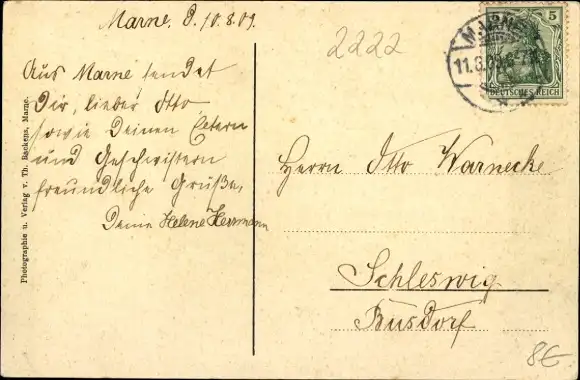 Marne. d. 10.8.09.
Aus Marne sendet
Dir, lieber Otto
sowie Deinen Eltern
und Geschwistern
freundliche Grüße,
Deine Helene Herrmann
Photographie u. Verlag v. Th. Backens, Marne.
2222
MARNE
11.8.09.6-7
5
DEUTSCHES REICH
Herrn Otto Warnecke
Schleswig
Busdorf
8E